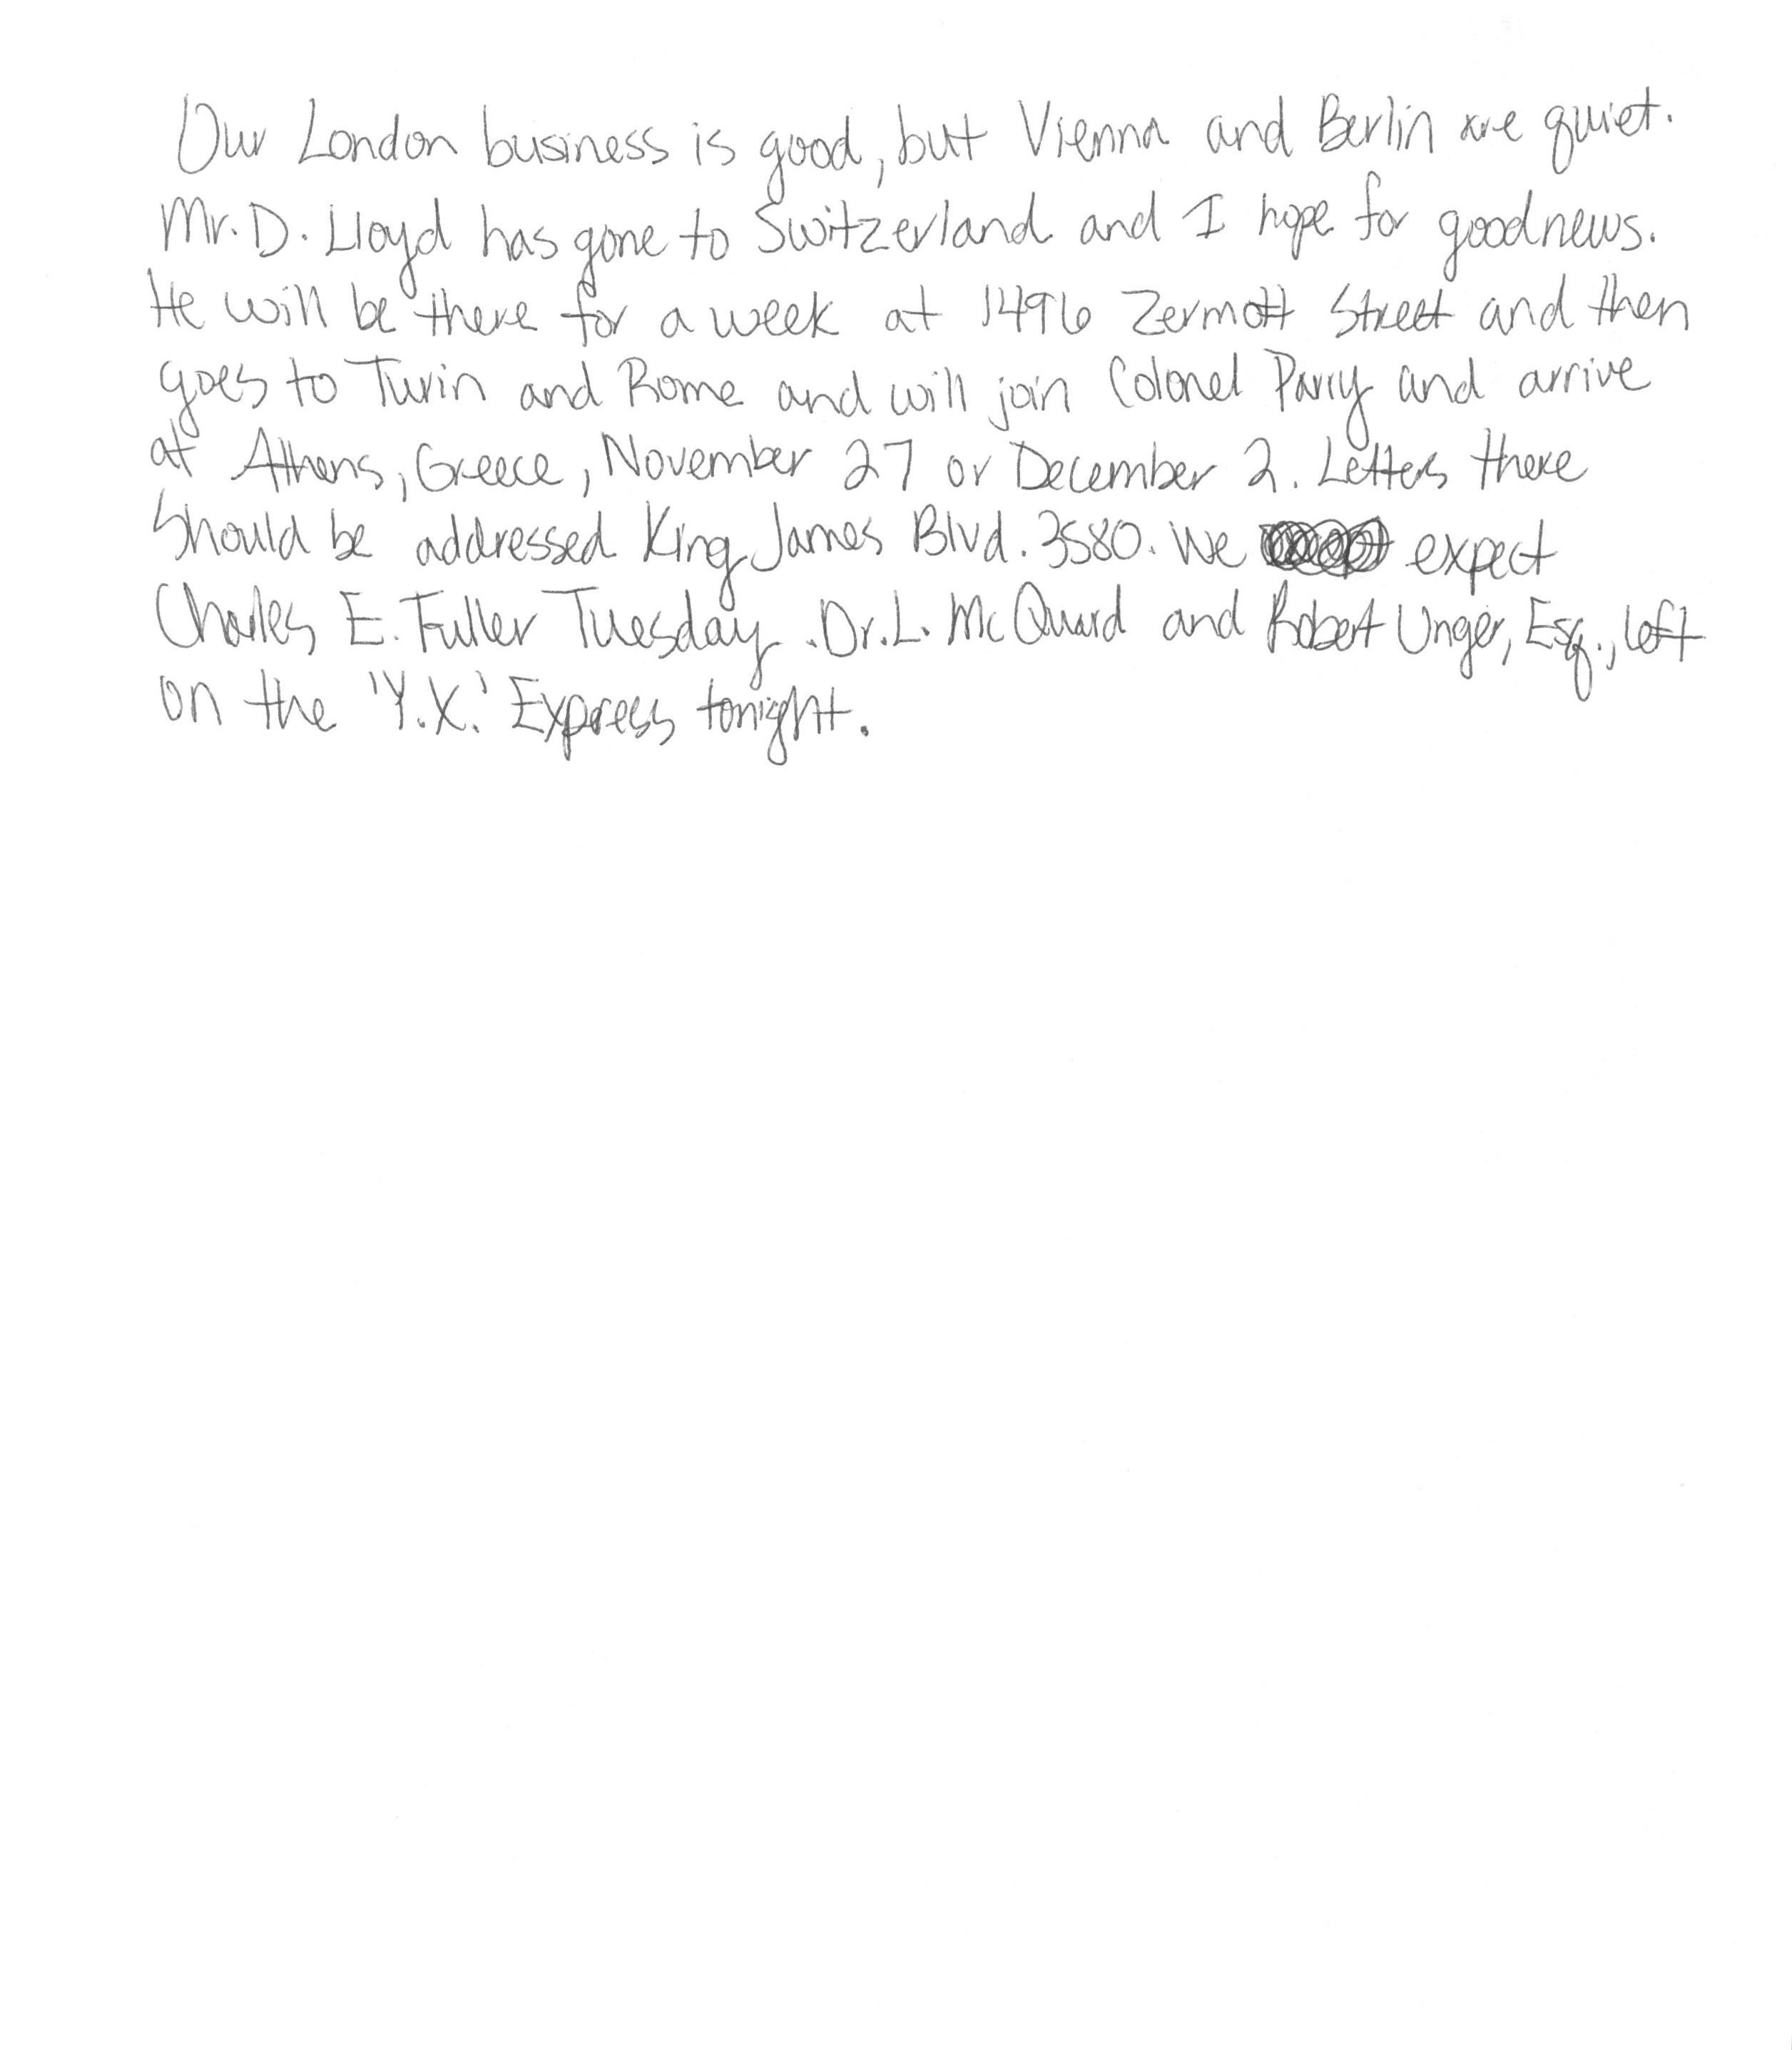 Our London business is good, but Vienna and Berlin are quiet.
Mr. D. Lloyd has gone to Switzerland and I hope for good news.
He will be there for a week at 1496 Zermott Street and then
goes to Turin and Rome and will join Colonel Parry and arrive
at Athens, Greece, November 27 or December 2. Letters there
should be addressed King James Blvd. 3580. We expect
Charles E. Fuller Tuesday. Dr. L. McQuard and Robert Unger, Esq., left
on the 'Y.X.' Express tonight.